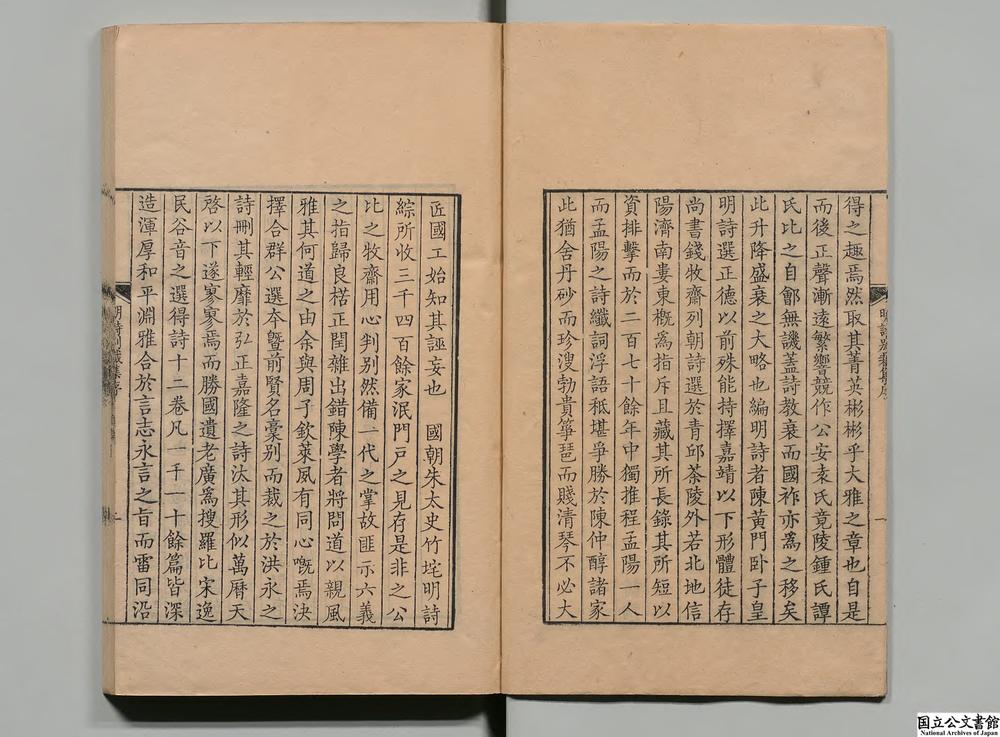 得之趣焉然取其菁英彬彬乎大雅之章也自是
而後正聲漸遠繁響競作公安袁氏竟陵鍾氏譚
氏比之自鄶無譏蓋詩教衰而國祚亦為之移矣
此升降盛衰之大略也編明詩者陳黃門卧子皇
明詩選正德以前殊能持擇嘉靖以下形體徒存
尚書錢牧齋列朝詩選於青邱茶陵外若北地信
陽濟南婁東概為指斥且藏其所長錄其所短以
資排擊而於二百七十餘年中獨推程孟陽一人
而孟陽之詩纖詞浮語秪堪爭勝於陳仲醇諸家
此猶舍丹砂而珍溲勃貴箏琶而賤清琴不必大
匠國工始知其誣妄也　國朝朱太史竹垞明詩
綜所收三千四百餘家泯門戶之見存是非之公
比之牧齋用心判别然備一代之掌故匪示六義
之指歸良楛正閏雜出錯陳學者將問道以親風
雅其何道之由余與周子欽萊夙有同心嘅焉決
擇合群公選本暨前賢名稾别而裁之於洪永之
詩刪其輕靡於弘正嘉隆之詩汰其形似萬曆天
啓以下遂寥寥焉而勝國遺老廣為搜羅比宋逸
民谷音之選得詩十二卷凡一千一十餘篇皆深
造渾厚和平淵雅合於言志永言之旨而雷同沿
国立公文書館
National Archives of Japan